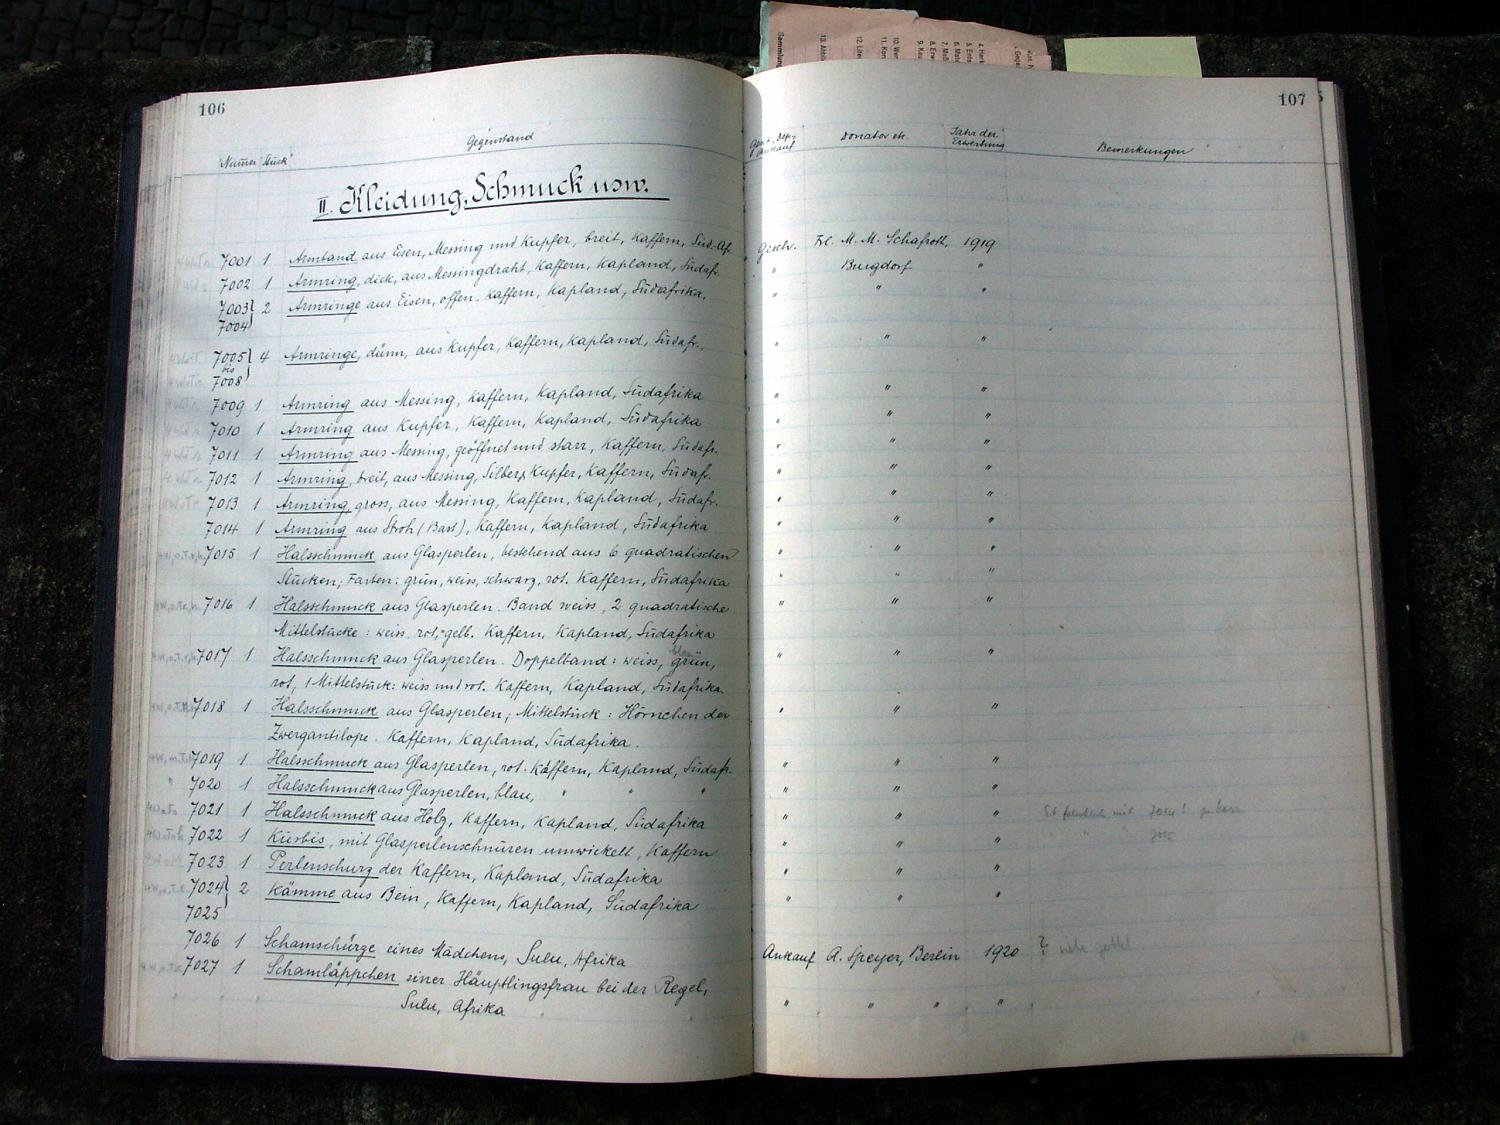 106
Gegenstand
Numer Stück
II. Kleidung, Schmuck usw.
7001 1 Armband aus Eisen, Messing und Kupfer, breit, Kaffern, Süd-Af.
7002 1 Armring, dick, aus Messingdraht, Kaffern, Kapland, Südafr.
7003 } 2 Armringe aus Eisen, offen. Kaffern, Kapland, Südafrika,
7004
7005 } 4 Armringe, dünn, aus Kupfer, Kaffern, Kapland, Südafr.
bis
7008
7009 1 Armring aus Messing, Kaffern, Kapland, Südafrika
7010 1 Armring aus Kupfer, Kaffern, Kapland, Südafrika
7011 1 Armring aus Messing, geöffnet und starr, Kaffern, Südafr.
7012 1 Armring, breit, aus Messing, Silber, Kupfer, Kaffern, Südaf.
7013 1 Armring, gross, aus Messing, Kaffern, Kapland, Südafr.
7014 1 Armring aus Stroh (Bast), Kaffern, Kapland, Südafrika
7015 1 Halsschmuck aus Glasperlen, bestehend aus 6 quadratischen
Stücken; Farben: grün, weiss, schwarz, rot. Kaffern, Südafrika
7016 1 Halsschmuck aus Glasperlen. Band weiss, 2 quadratische
Mittelstücke: weiss, rot, gelb. Kaffern, Kapland, Südafrika
7017 1 Halsschmuck aus Glasperlen. Doppelband: weiss, grün,
blau
rot, 1 Mittelstück: weiss und rot. Kaffern, Kapland, Südafrika
7018 1 Halsschmuck aus Glasperlen; Mittelstück: Hörnchen der
Zwergantilope. Kaffern, Kapland, Südafrika.
7019 1 Halsschmuck aus Glasperlen, rot. Kaffern, Kapland, Südafr.
7020 1 Halsschmuck aus Glasperlen, blau, " " "
7021 1 Halsschmuck aus Holz, Kaffern, Kapland, Südafrika
7022 1 Kürbis, mit Glasperlenschnüren umwickelt, Kaffern
7023 1 Perlenschurz der Kaffern, Kapland, Südafrika
7024 } 2 Kämme aus Bein, Kaffern, Kapland, Südafrika
7025
7026 1 Schamschürze eines Mädchens, Sulu, Afrika
7027 1 Schamläppchen einer Häuptlingsfrau bei der Regel,
Sulu, Afrika
107
Gesch., Dep., Ankauf
Donator etc.
Jahr der Erwerbung
Bemerkungen
Gesch. Frl. M. M. Schafroth, 1919
" Burgdorf "
" " "
" " "
" " "
" " "
" " "
" " "
" " "
" " "
" " "
" "
" " "
" " "
" " "
" " "
" " "
" " "
" " "
" " "
" " "
Ankauf A. Speyer, Berlin 1920 ?
" " " "